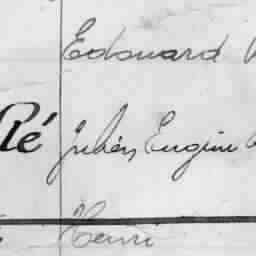 Edouard
Ré Julien Eugène
Henri